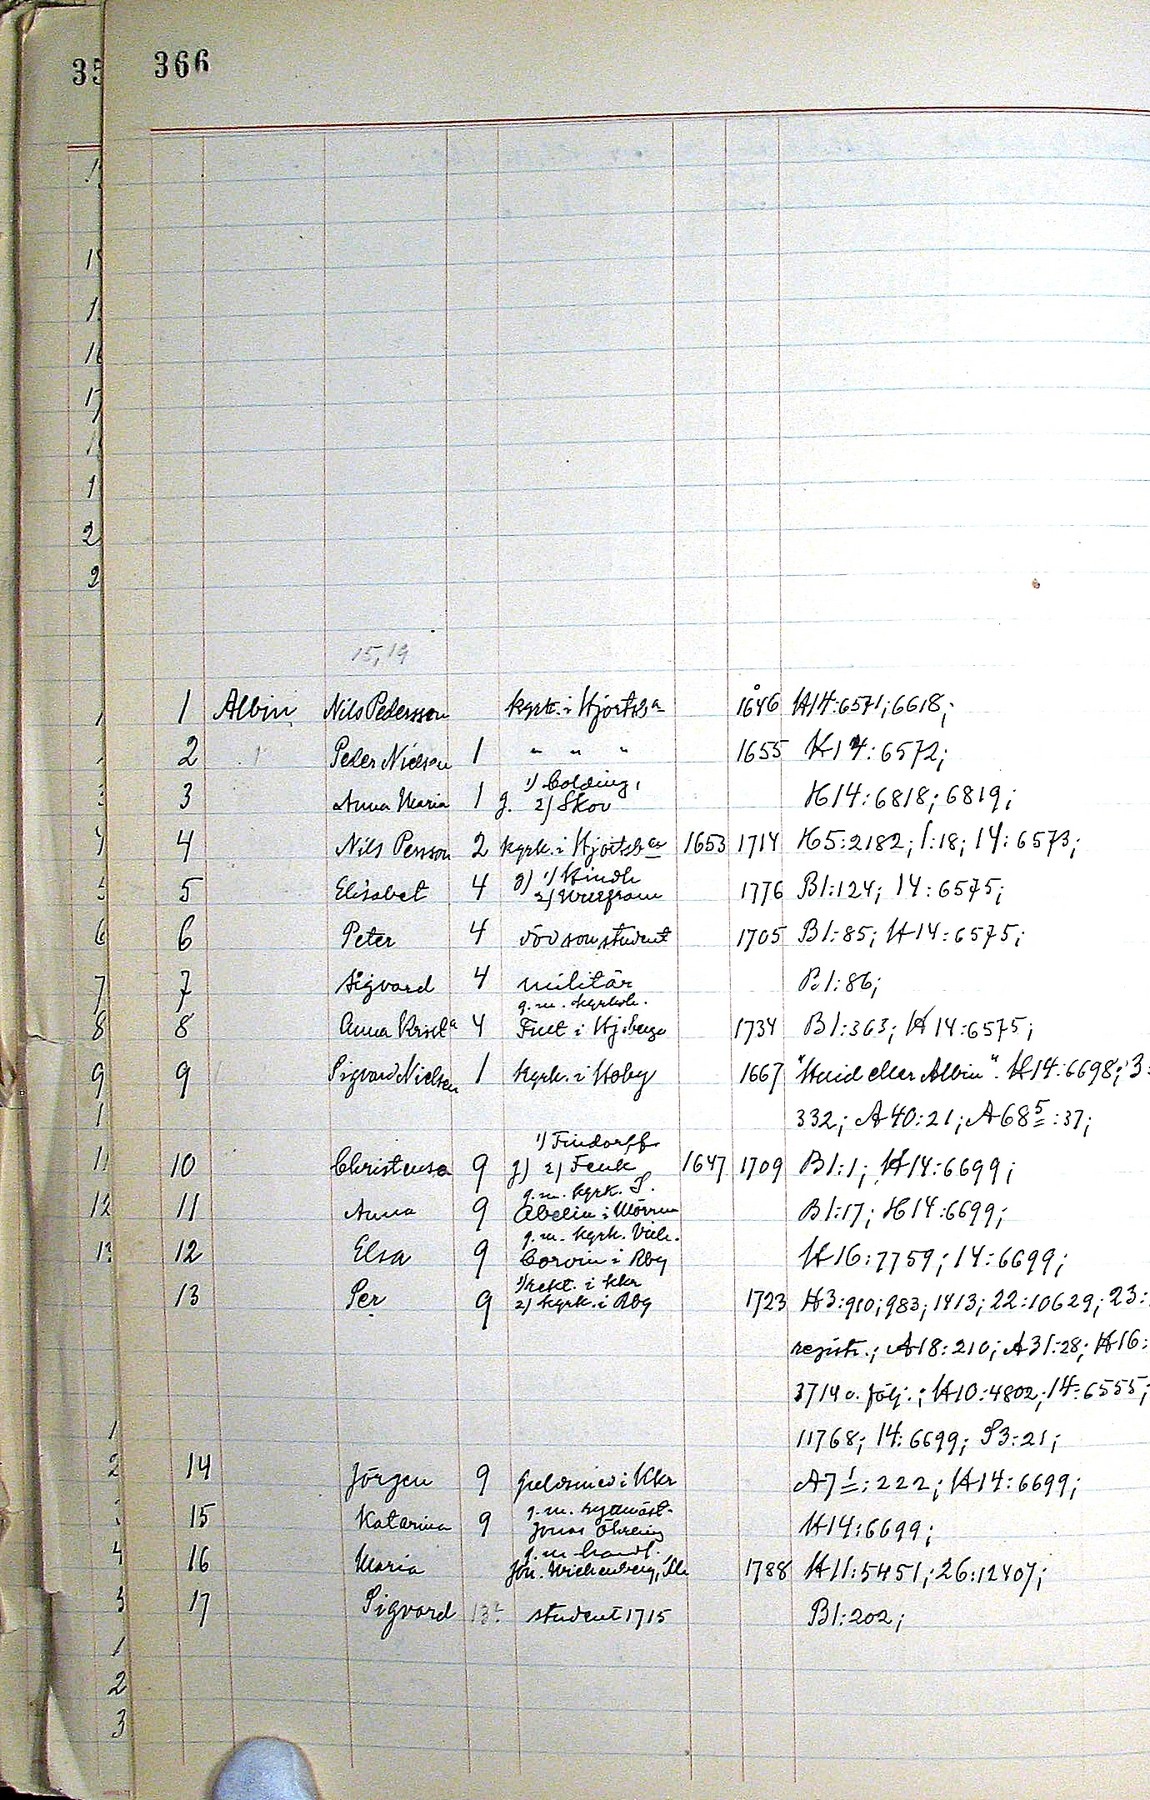 35 366
15, 19
1 Albin Nils Pedersson kyrk. i Hjortsb:a 1646 H14:6571; 6618;
2 Peder Nielsen 1 " " " 1655 H14:6572;
3 Anna Maria 1 g. 1) Colding, 2) Skov H14:6818; 6819;
4 Nils Persson 2 kyrk. i Hjortsb:a 1653 1714 H5:2182; 1:18; 14:6573;
5 Elisabet 4 g) 1) Hindh 2) 1776 B1:124; 14:6575;
6 Peter 4 död som student 1705 B1:85; H14:6575;
7 Sigvard 4 militär B1:86;
8 Anna 4 g. m. kyrkoh. i 1734 B1:363; H14:6575;
9 Sigvard Nielsen 1 kyrk. i Hoby 1667 "Hvid eller Albin". H14:6698; 3:
332; A40:21; A68 5:37;
10 Christensa 9 g) 1) Findorff 2) Fenk 1647 1709 B1:1; H14:6699;
11 Anna 9 g. m. kyrk. S. Abelin i Mörrum B1:17; H14:6699;
12 Elsa 9 g. m. kyrk. Corvin i Rbg H16:7759; 14:6699;
13 Per 9 1) rekt. i Kkr 2) kyrk. i Rbg 1723 H3:910; 983; 1413; 22:10629; 23:
registr.; A18:210; A31:28; H16:
3714 o. följ.; H10:4802; 14:6555;
11768; 14:6699; S3:21;
14 Jörgen 9 guldsmed i Kkr A7 1:222; H14:6699;
15 Katarina 9 g. m. Jonas Öhrling H14:6699;
16 Maria g. m. handl. 1788 H11:5451; 26:12407;
17 Sigvard 13? student 1715 B1:202;